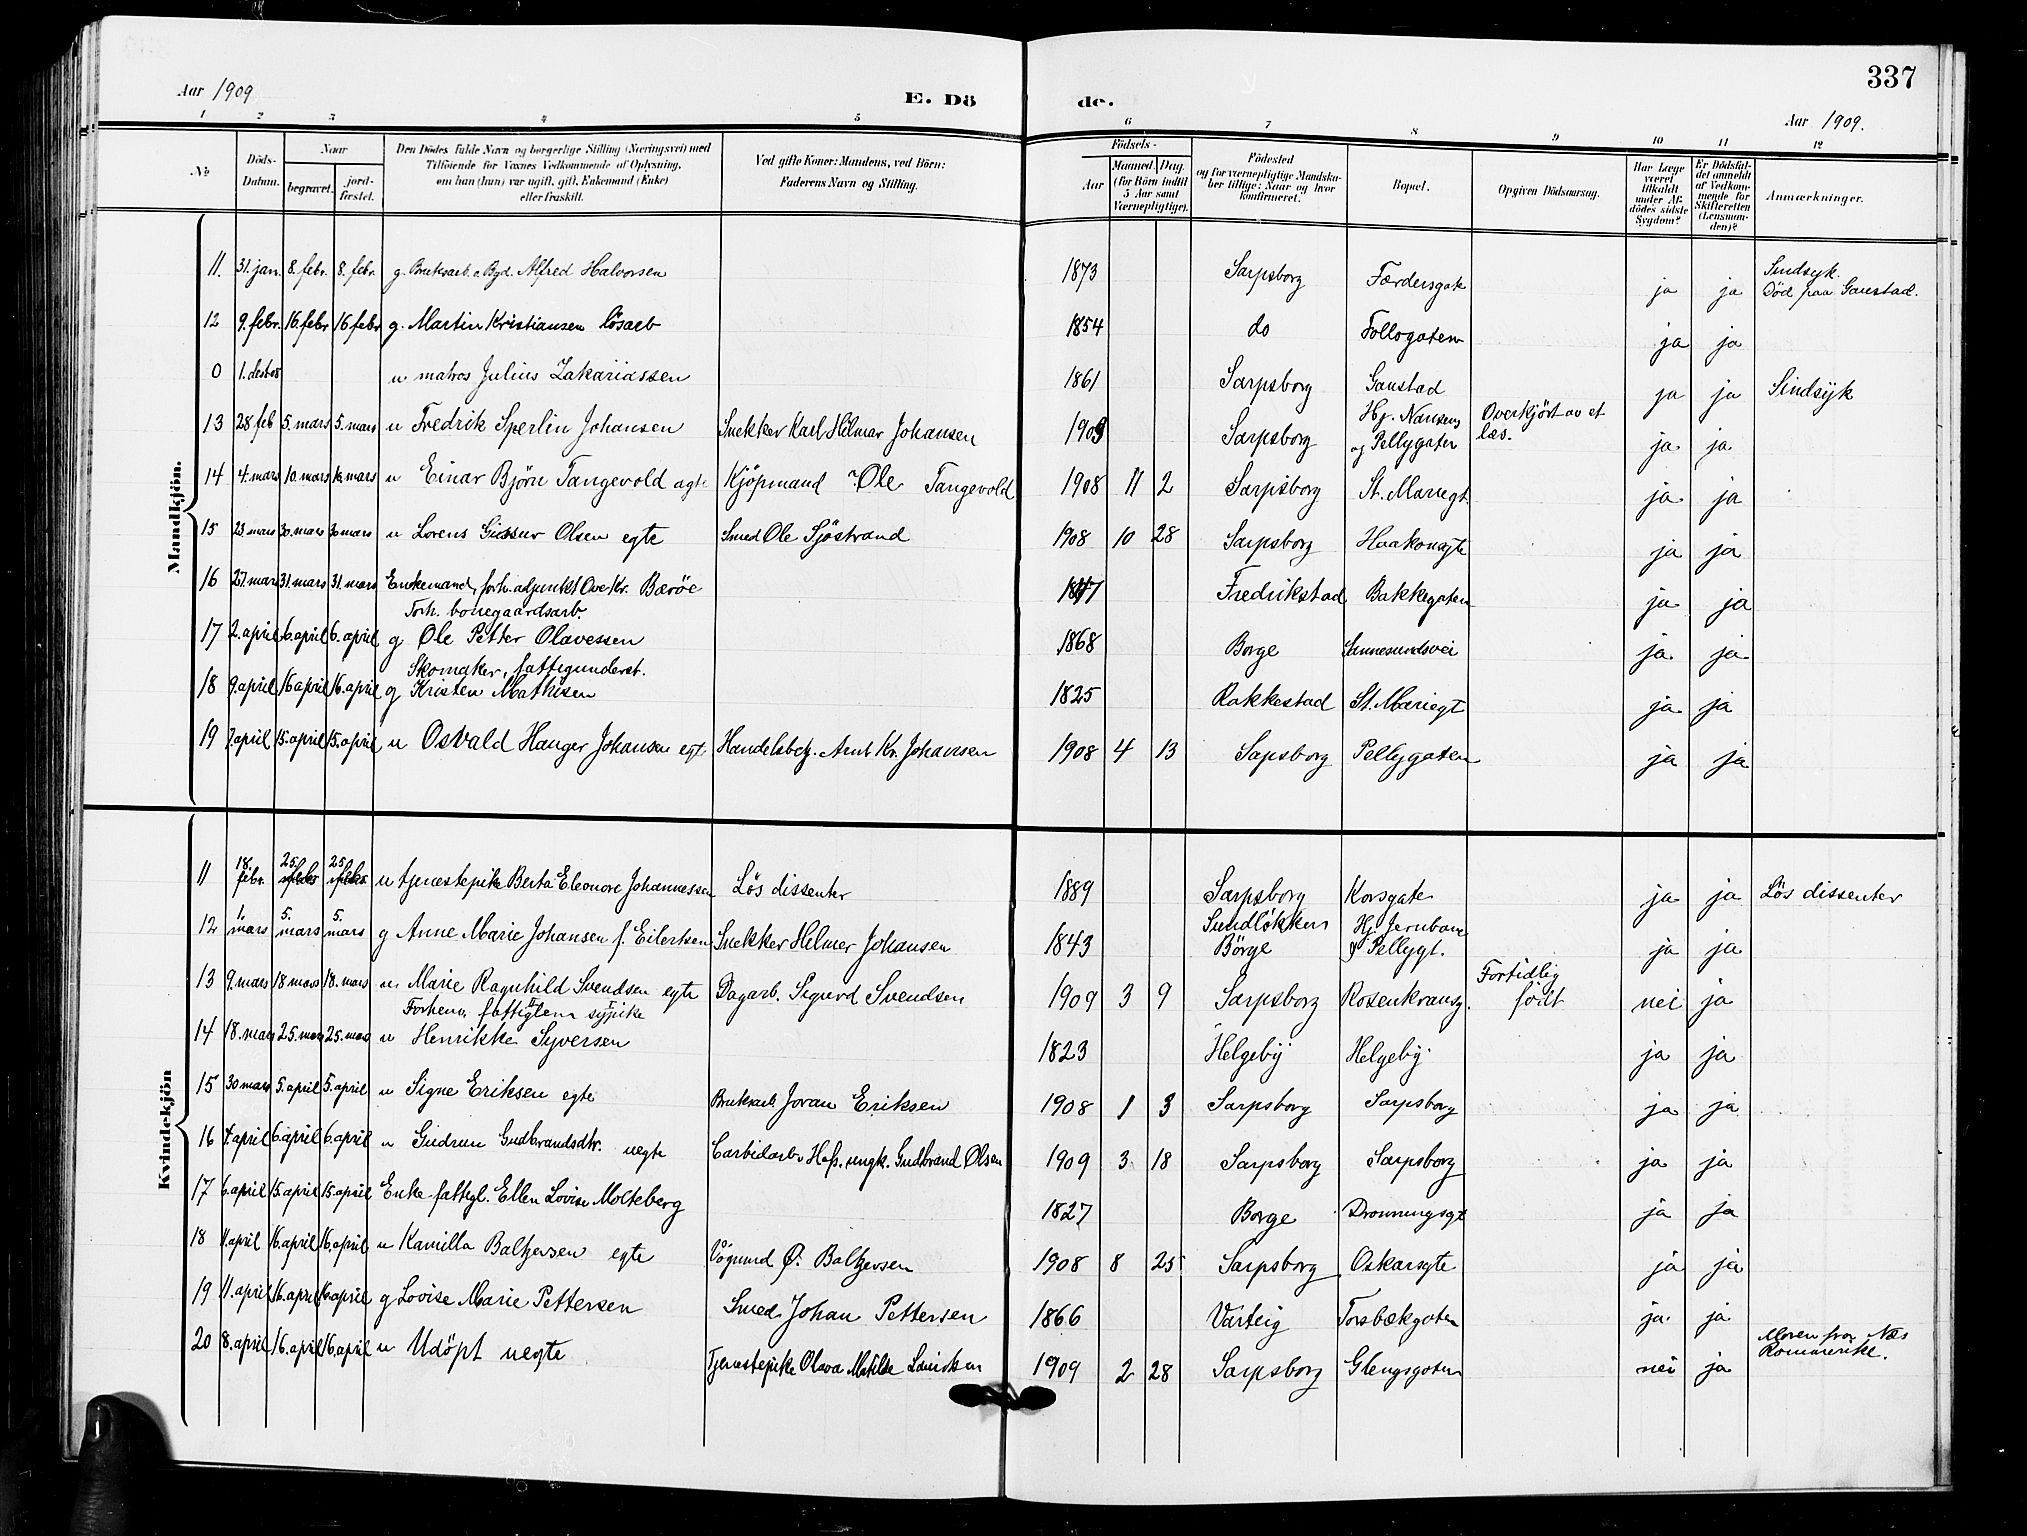 337
Aar 1909
E. Dö de.
Aar 1909.
1 2 3 4 5 6 7 8 9 10 11 12
№
Döds-
Datum.
Naar
begravet.
jord-
fæstet.
Den Dödes fulde Navn og borgerlige Stilling (Næringsvei) med
Tilföiende for Voxnes Vedkommende af Oplysning,
om han (hun) var ugift, gift, Enkemand (Enke)
eller fraskilt.
Ved gifte Koner: Mandens, ved Börn:
Faderens Navn og Stilling.
Födsels-
Aar
Maaned. Dag.
(for Börn indtil
5 Aar samt
Værnepligtige).
Födested
og for værnepligtige Mandskaber
tillige: Naar og hvor
konfirmeret.
Bopæl.
Opgiven Dödsaarsag.
Har Læge
været
tilkaldt
under Af-
dödes sidste
Sygdom?
Er Dödsfal-
det anmeldt
af Vedkom-
mende for
Skifteretten
(Lensman-
den)?
Anmærkninger.
Mandkjön.
11. 31. jan. 8. febr. 8. febr. g. Bruksarb. Alfred Halvorsen 1873 Sarpsborg Færdersgate ja ja Sindsyk.
Död paa Gaustad.
12 9. febr. 16. febr 16 febr g. Martin Kristiansen lösarb 1854 do Follogaten ja ja
0 1. des 08 u matros Julius Zakariassen 1861 Sarpsborg Gaustad ja ja Sindsyk
13 28 feb 5. mars 5. mars u Fredrik Sperlin Johansen Snekker Karl Helmar Johansen 1903 Sarpsborg Hj. Nansens
og Pellygaten Overkjört av et
læs. ja ja
14 4. mars 10. mars 10. mars u Einar Björn Tangevold egte Kjöpmand Ole Tangevold 1908 11 2 Sarpsborg St. Mariegt. ja ja
15 23. mars 30. mars 30 mars u Lorens Olsen egte Smed Ole Sjöstrand 1908 10 28 Sarpsborg Haakonsgte ja ja
16 27. mars 31. mars 31. mars Enkemand, forh. adjunkt Ove Kr. Bærøe Fredrikstad Bakkegaten ja ja
17 2. april 6. april 6. april Forh. bomegaardsarb.
g Ole Petter Olavessen 1868 Borge Sannesundsvei ja ja
18 9. april 16 april 16. april Skomaker, fattigunderst.
g Kristen Mathisen 1825 Rakkestad St. Mariegt ja ja
19 7. april 15. april 15. april u Osvald Hauger Johansen egt. Handelsbetj. Arnt Kr. Johansen 1908 4 13 Sapsborg Pellygaten ja ja
Kvindekjön
11 18. febr. 25. 25. u tjenestepike Berta Eleonore Johannessen Lös dissenter 1889 Sarpsborg Korsgate ja ja Lös dissenter
12 1. mars 5. mars 5. mars g Anne Marie Johansen f. Eilertsen Snekker Helmer Johansen 1843 Sundlökken
Börge Hj Jernbane
& Pellygt. ja ja
13 9. mars 18 mars 18. mars u Marie Ragnhild Svendsen egte Dagarb. Sigurd Svendsen 1909 3 9 Sarpsborg Rosenkransg. Fortidlig
födt nei ja
14 18. mars 25. mars 25. mars Forhenv. fattiglem sypike
u Henrikke Syversen 1823 Helgeby Helgeby ja ja
15 30 mars 5. april 5. april u Signe Eriksen egte Bruksarb. Joran Eriksen 1908 1 3 Sarpsborg Sarpsborg ja ja
16 4. april 6. april 6. april u Gudrun Gudbrandsdtr. uegte Carbidarb. ungk. Gudbrand Olsen 1909 3 18 Sarpsborg Sarpsborg ja ja
17 6. april 15. april 15. april Enke fattigl. Ellen Lovise Molteberg 1827 Borge Dronningsgt ja ja
18 11. april 16. april 16. april u Kamilla Baltzersen egte Vögnmd Ö. Baltzersen 1908 8 25 Sarpsborg Oskarsgte ja ja
19 11. april 16. april 16 april g Lovise Marie Pettersen Smed Johan Pettersen 1866 Varteig Torsbækgaten ja ja
20 8. april 16. april 16. april u Udöpt uegte Tjenestepike Olava Matilde 1909 2 28 Sarpsborg Glengsgaten nei ja Moren fra Næs
Romerike.